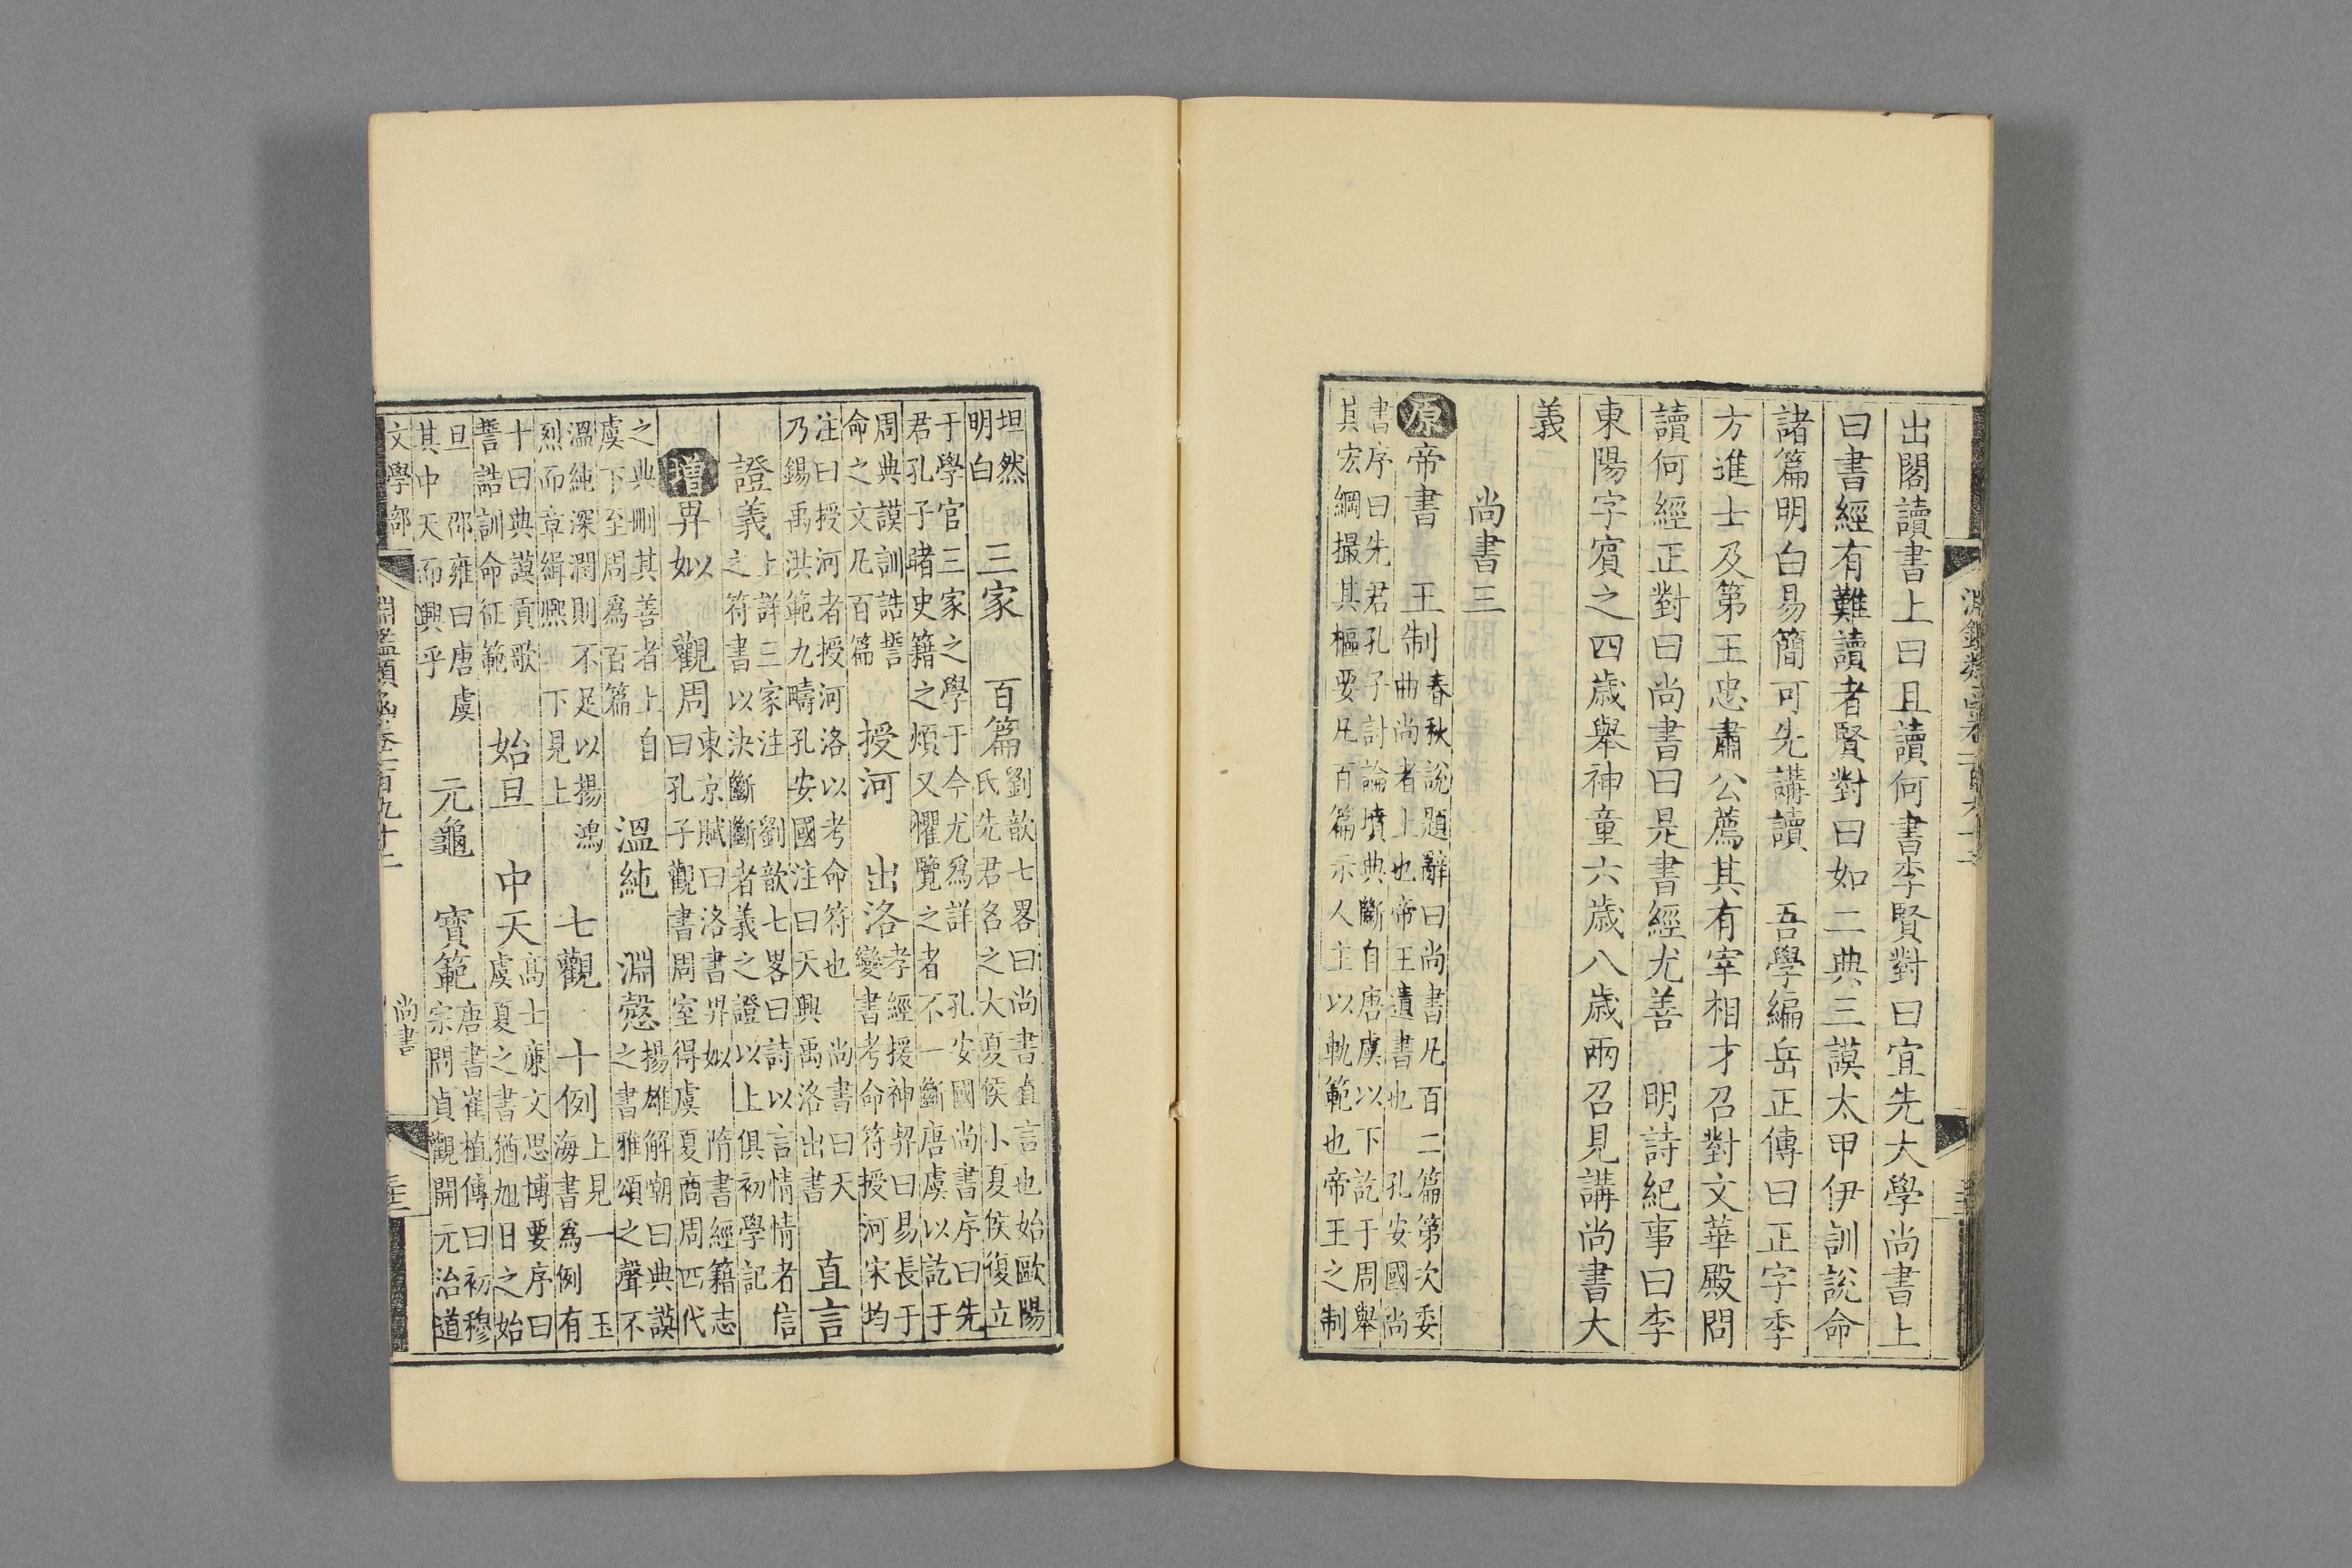 淵鑑類函
出閣讀書上曰且讀何書李賢對曰宜先大學尚書上
曰書經有難讀者賢對曰如二典三謨太甲伊訓說命
諸篇明白易簡可先講讀　吾學編岳正傳曰正字季
方進士及第王忠肅公薦其有宰相才召對文華殿問
讀何經正對曰尚書曰是書經尤善　明詩紀事曰李
東陽字賓之四歲舉神童六歲八歲兩召見講尚書大
義
尚書三
原帝書　王制春秋說題辭曰尚書凡百二篇第次委曲尚者上也帝王遺書也　孔安國尚
書序曰先君孔子討論墳典斷自唐虞以下訖于周舉其宏綱撮其樞要凡百篇示人主以軌範也帝王之制
坦然明白　三家　百篇劉歆七畧曰尚書直言也始歐陽氏先君名之大夏侯小夏侯復立
于學官三家之學于今尤爲詳　孔安國尚書序曰先君孔子睹史籍之煩文懼覽之者不一斷唐虞以訖于
周典謨訓誥誓命之文凡百篇　授河　出洛孝經援神契曰易長于變書考命符授河宋均
注曰授河者授河洛以考命符也　尚書曰天乃錫禹洪範九疇孔安國注曰天興禹洛出書　直言
證義上詳三家注　劉歆七畧曰詩以言情情者信之符書以決斷斷者義之證以上俱初學記
增畀姒　觀周東京賦曰洛書畀姒　隋書經籍志曰孔子觀書周室得虞夏商周四代
之典刪其善者上自虞下至周爲百篇　溫純　淵慤揚雄解嘲曰典謨之書雅頌之聲不
溫純深潤則不足以揚鴻烈而章緝熙　下見上　七觀　十例上見一　玉海書爲例有
十曰典謨貢歌誓誥訓命征範　始旦　中天高士廉文思博要序曰虞夏之書猶旭日之始
旦　邵雍曰唐虞其中天而興乎　元龜　寶範唐書崔植傳曰初穆宗問貞觀開元治道
文學部　淵鑑類函卷一百九十二　尚書